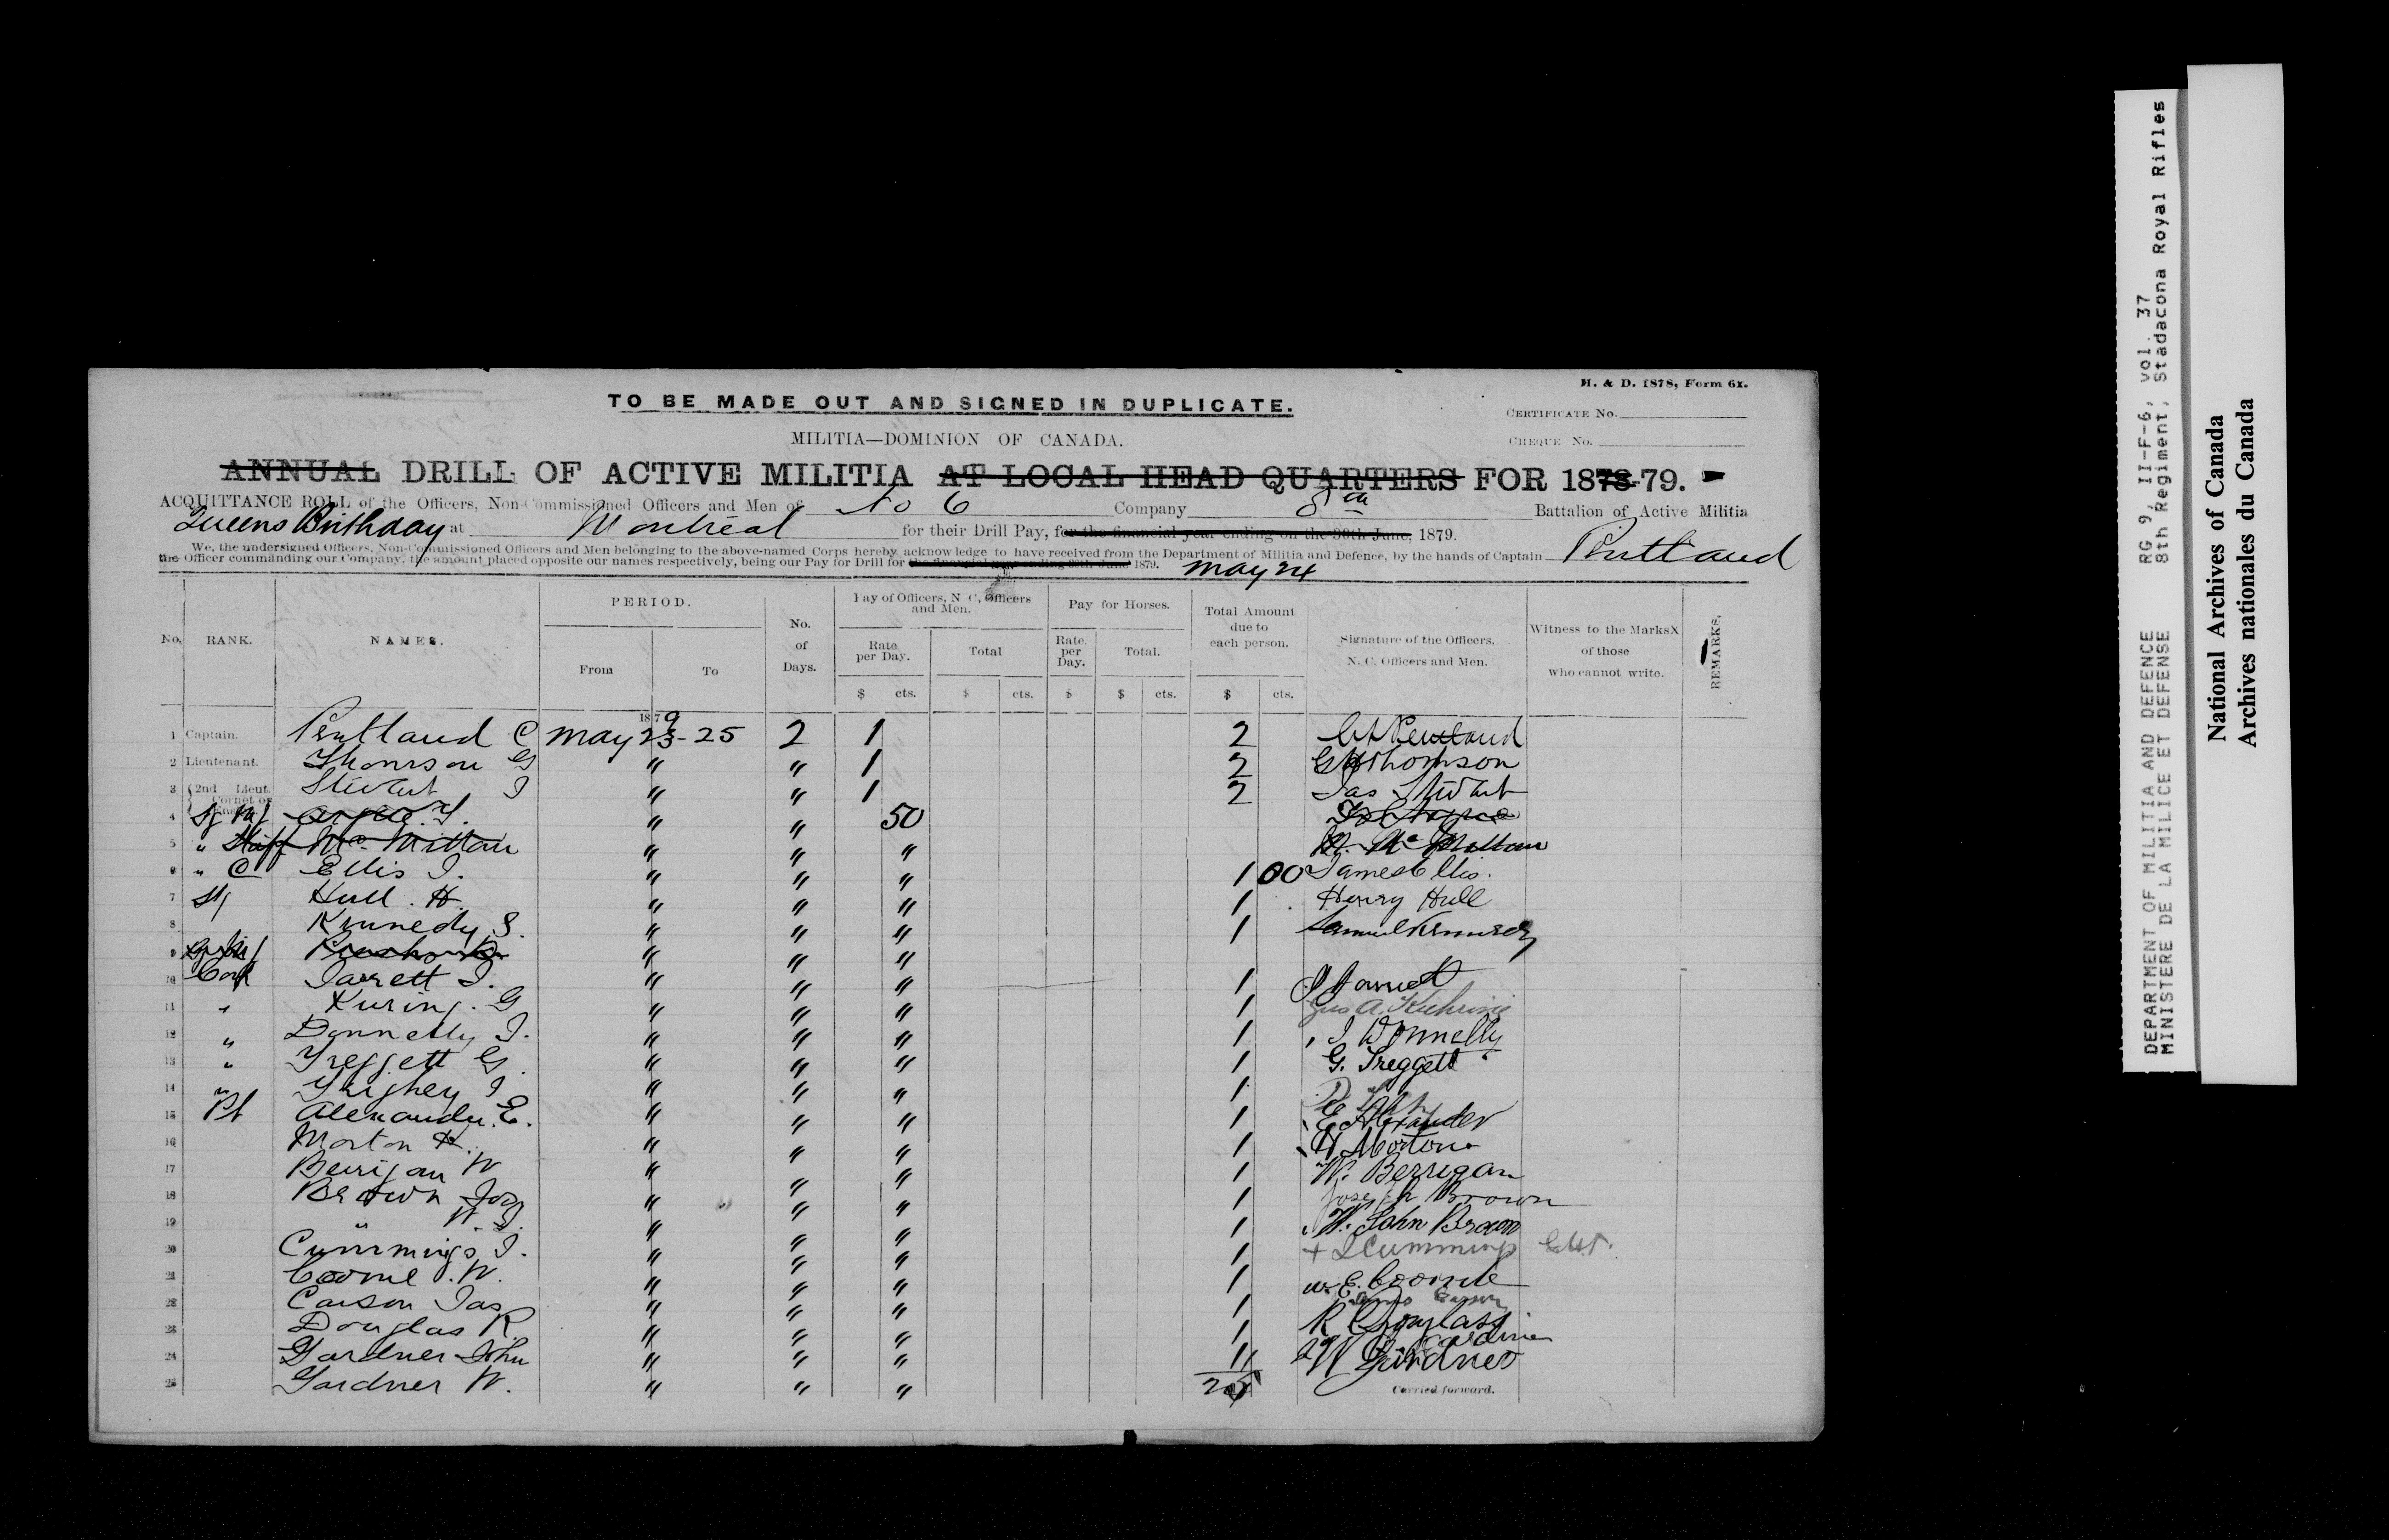 M. & D. 1878, Form 61.
TO BE MADE OUT AND SIGNED IN DUPLICATE.
CERTIFICATE No.
MILITIA—DOMINION OF CANADA.
CHEQUE No.
ANNUAL DRILL OF ACTIVE MILITIA AT LOCAL HEAD QUARTERS FOR 1878-79.
ACQUITTANCE ROLL of the Officers, Non-Commissioned Officers and Men of No 6 Company 8th Battalion of Active Militia
Queens Birthday at Montreal for their Drill Pay, for the financial year ending on the 30th June, 1879.
We, the undersigned Officers, Non-Commissioned Officers and Men belonging to the above-named Corps hereby acknowledge to have received from the Department of Militia and Defence, by the hands of Captain Pentland
the Officer commanding our Company, the amount placed opposite our names respectively, being our Pay for Drill for the financial year ending 30th June 1879. May 24
No. RANK. NAMES. PERIOD. From To No. of Days. Pay of Officers, N. C. Officers and Men. Rate per Day. Total Pay for Horses. Rate per Day. Total. Total Amount due to each person. Signature of the Officers. N. C. Officers and Men. Witness to the Marks X of those who cannot write. REMARKS.
$ cts. $ cts. $ $ cts. $ cts.
1879
1 Captain. Pentland C May 23-25 2 1 2 Pentland
2 Lieutenant. Thomson G " " 1 2 G Thomson
3 2nd Lieut. Cornet or Stewart J " " 1 2 Jas Stewart
4 Sj Mj " " 50
5 " Staff McMillan " " " McMillan
6 " C Ellis J. " " " 1 00 James Ellis.
7 Sj Hull H. " " " 1 Henry Hull
8 Kennedy S. " " " 1 Samuel Kennedy
9 " " "
10 Corp Jarrett J. " " " 1 J Jarrett
11 " Kuring G " " " 1
12 " Donnelly J. " " " 1 J Donnelly
13 " Treggett G. " " " 1 G. Treggett
14 " " " " 1
15 Pt Alexander E. " " " 1 E Alexander
16 Morton H. " " " 1 H Morton
17 Berrigan W " " " 1 W. Berrigan
18 Brown Jos " " " 1 Joseph Brown
19 " W. J. " " " 1 W. John Brown
20 Cummings J. " " " 1 + J Cummings
21 Coome W. " " " 1 W. E. Coome
22 Carson Jas " " " 1 James Carson
23 Douglas R. " " " 1 R Douglass
24 Gardner John " " " 1 Gardner
25 Gardner W. " " " W Gardner
25 Carried forward.
DEPARTMENT OF MILITIA AND DEFENCE RG 9, II-F-6, vol. 37
MINISTERE DE LA MILICE ET DEFENSE 8th Regiment, Stadacona Royal Rifles
National Archives of Canada
Archives nationales du Canada